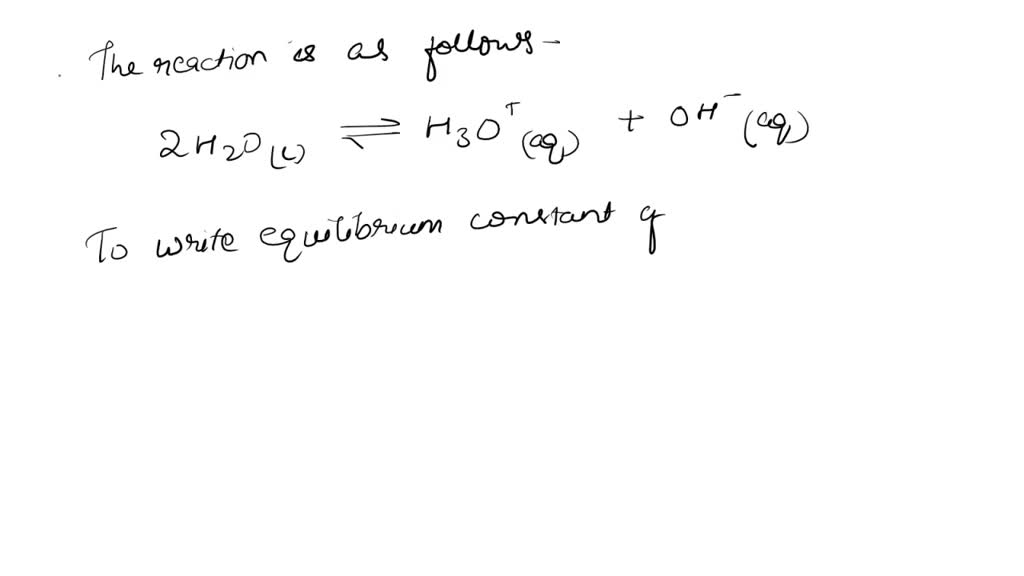 The reaction is as follows-
2H₂O(l) ⇌ H₃O⁺(aq) + OH⁻(aq)
To write equilibrium constant of